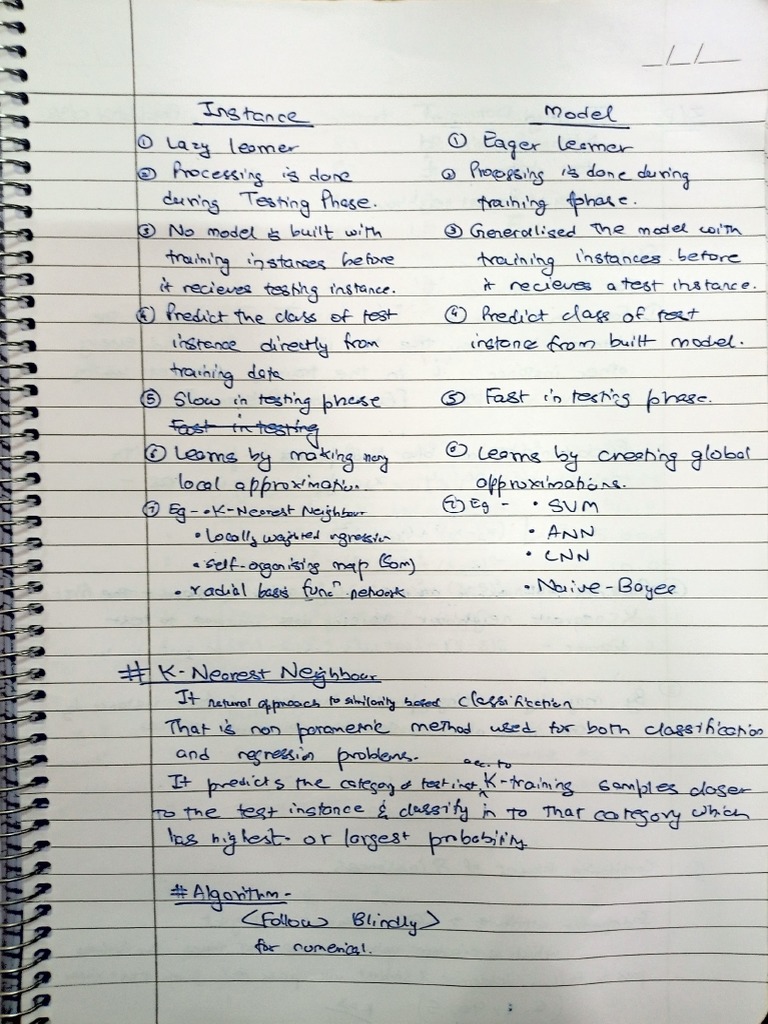 _/_/__
Instance
Model
① Lazy learner
① Eager learner
② Processing is done
② Processing is done during
during Testing Phase.
training phase.
③ No model is built with
③ Generalised the model with
training instances before
training instances before
it recieves testing instance.
it recieves a test instance.
④ Predict the class of test
④ Predict class of test
instance directly from
instance from built model.
training data
⑤ Slow in testing phase
⑤ Fast in testing phase.
Fast in testing
⑥ Learns by making many
⑥ Learns by creating global
local approximation.
approximations.
⑦ Eg- • K-Nearest Neighbour
⑦ Eg - • SVM
• Locally weighted regression
• ANN
• self-organising map (Som)
• CNN
• radial basis funcⁿ network
• Naive-Bayee
# K-Nearest Neighbour
It natural approach to similarity based classification
That is non parametric method used for both classification
and regression problems.
acc. to
It predicts the category of test inst. ^ K-training samples closer
to the test instance & classify in to that category which
has highest or largest probability.
# Algorithm-
<Follow Blindly>
for numerical.